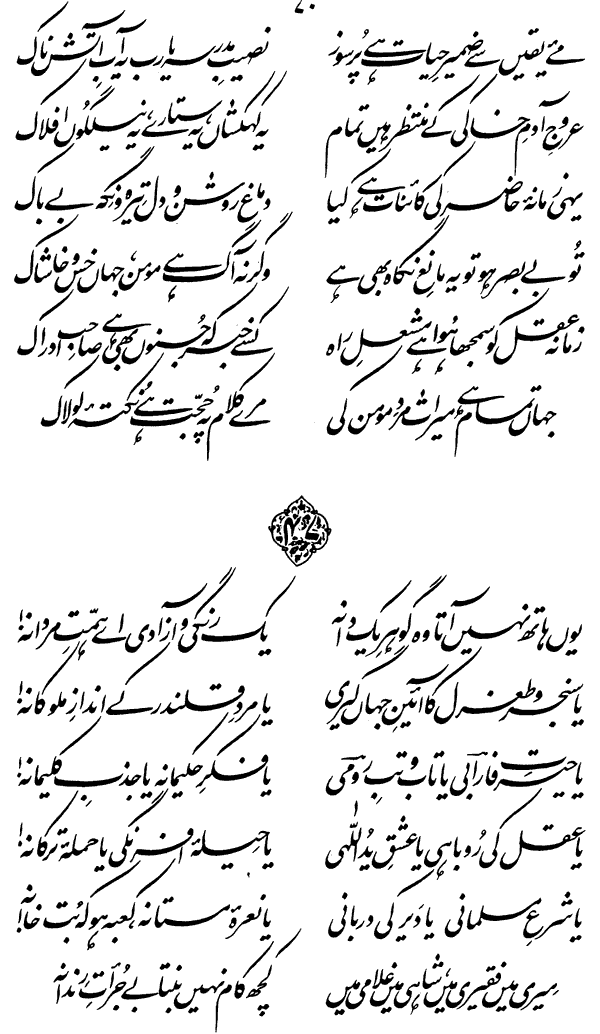 مے یقیں سے ضمیرِ حیات ہے پُرسوز نصیبِ مدرسہ یا رب یہ آبِ آتش ناک
عروجِ آدمِ خاکی کے منتظر ہیں تمام یہ کہکشاں، یہ ستارے، یہ نیلگوں افلاک
یہی زمانۂ حاضر کی کائنات ہے کیا دماغ روشن و دل تیرہ و نگہ بے باک
تُو بے بصر ہو تو یہ مانعِ نگاہ بھی ہے وگرنہ آگ ہے مومن، جہاں خس و خاشاک
زمانہ عقل کو سمجھا ہُوا ہے مشعلِ راہ کسے خبر کہ جُنوں بھی ہے صاحبِ ادراک
جہاں تمام ہے میراث مردِ مومن کی مرے کلام پہ حُجّت ہے نُکتۂ لولاک
یوں ہاتھ نہیں آتا وہ گوہرِ یک دانہ یک رنگی و آزادی اے ہمّتِ مردانہ!
یا سنجر و طغرل کا آئینِ جہاں گیری یا مردِ قلندر کے اندازِ ملوکانہ!
یا حیرتِ فارابیؔ یا تاب و تبِ رومیؔ یا فکرِ حکیمانہ یا جذبِ کلیمانہ!
یا عقل کی رُوباہی یا عشقِ یدُاللّٰہی یا حیلۂ افرنگی یا حملۂ ترکانہ!
یا شرعِ مسلمانی یا دَیر کی دربانی یا نعرۂ مستانہ، کعبہ ہو کہ بُت خانہ!
مِیری میں فقیری میں، شاہی میں غلامی میں کچھ کام نہیں بنتا بے جُرأتِ رندانہ